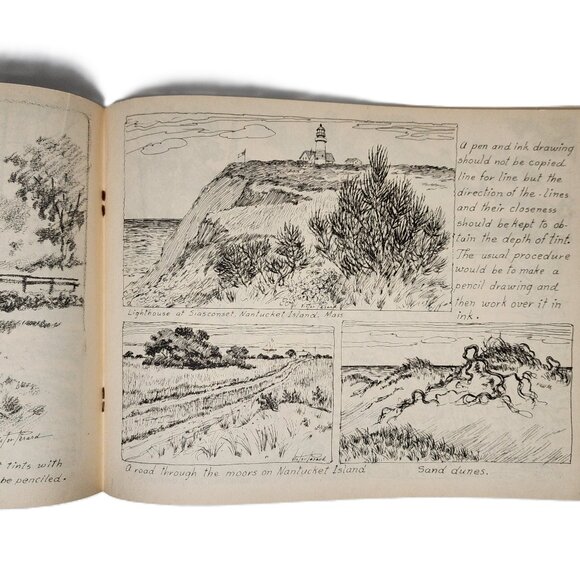 t tints with
be penciled.
A pen and ink drawing
should not be copied
line for line but the
direction of the lines
and their closeness
should be kept to ob-
tain the depth of tint.
The usual procedure
would be to make a
pencil drawing and
then work over it in
ink.
Lighthouse at Siasconset, Nantucket Island. Mass
A road through the moors on Nantucket Island
Sand dunes.